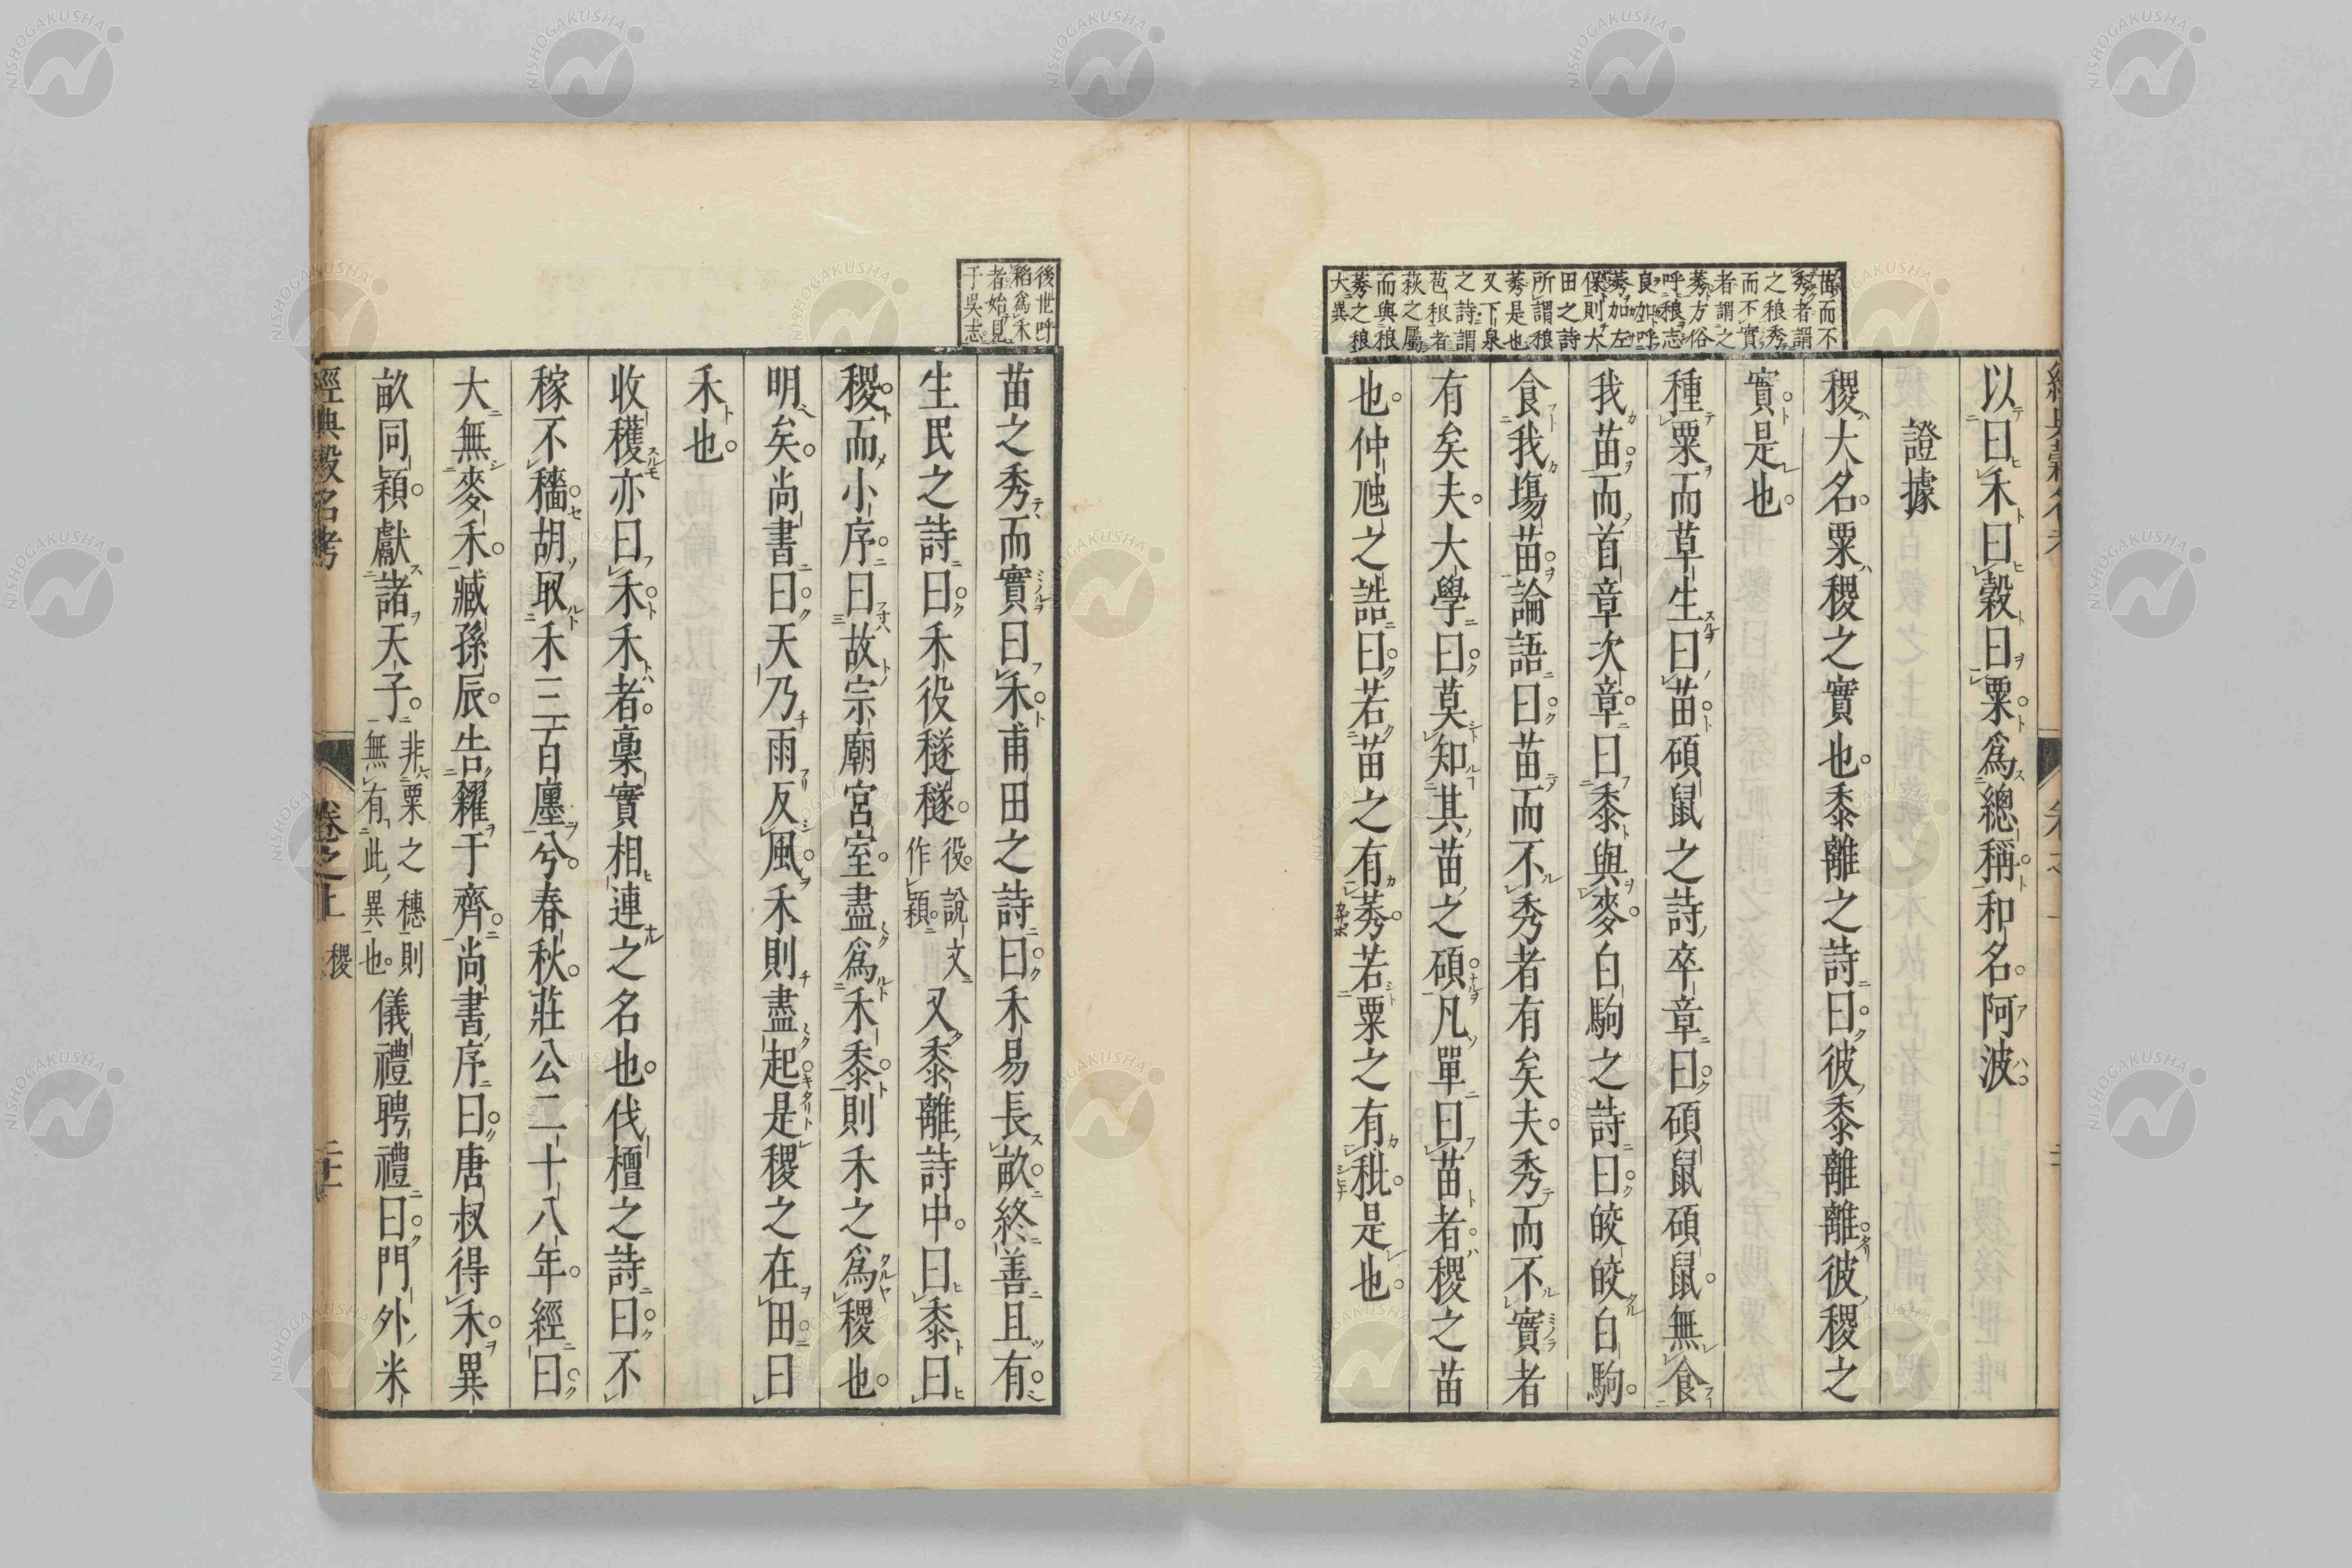 以曰禾曰穀曰粟爲總稱和名阿波
證據
稷大名粟稷之實也黍離之詩曰彼黍離離彼稷之
實是也
種粟而草生曰苗碩鼠之詩卒章曰碩鼠碩鼠無食
我苗而首章次章曰黍與麥白駒之詩曰皎皎白駒
食我場苗論語曰苗而不秀者有矣夫秀而不實者
有矣夫大學曰莫知其苗之碩凡單曰苗者稷之苗
也仲虺之誥曰若苗之有莠若粟之有秕是也
苗而不
秀者謂
之稂秀
而不實
者謂之
莠方俗
呼稂志
良如呼
莠加左
保則大
田之詩
所謂稂
莠是也
又下泉
之詩謂
苞稂者
萩之屬
而與稂
莠之稂
大異
苗之秀而實曰禾甫田之詩曰禾易長畝終善且有
生民之詩曰禾役穟穟役說文作穎又黍離詩中曰黍曰
稷而小序曰故宗廟宮室盡爲禾黍則禾之爲稷也
明矣尚書曰天乃雨反風禾則盡起是稷之在田曰
禾也
收穫亦曰禾禾者稾實相連之名也伐檀之詩曰不
稼不穡胡取禾三百廛兮春秋莊公二十八年經曰
大無麥禾臧孫辰告糴于齊尚書序曰唐叔得禾異
畝同穎獻諸天子非粟之穗則無有此異也儀禮聘禮曰門外米
後世呼
稻爲禾
者始見
于吳志
經典穀名考 卷之上 稷 二十一